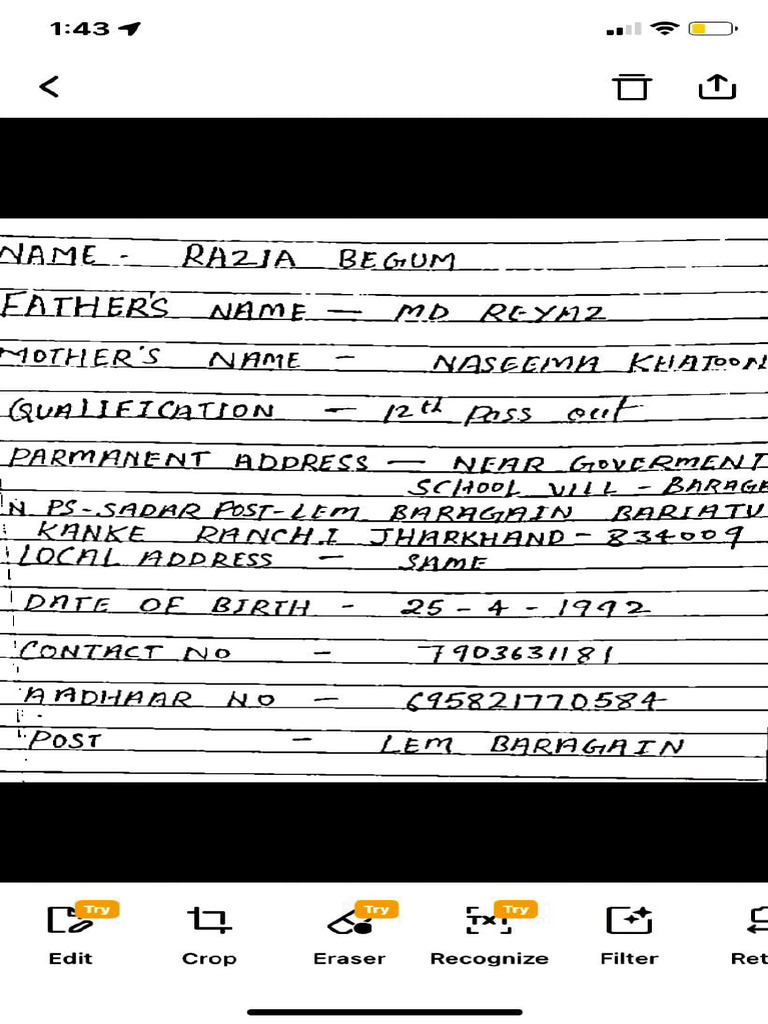 1:43
NAME - RAZIA BEGUM
FATHER'S NAME — MD REYAZ
MOTHER'S NAME - NASEEMA KHATOON
QUALIFICATION - 12th pass out
PARMANENT ADDRESS — NEAR GOVERMENT
SCHOOL VILL - BARAGA
N. PS-SADAR POST-LEM BARAGAIN BARIATU
KANKE RANCHI JHARKHAND - 834009
LOCAL ADDRESS - SAME
DATE OF BIRTH - 25-4-1992
CONTACT NO - 7903631181
AADHAAR NO - 695821770584
POST - LEM BARAGAIN
Try Try Try
Edit Crop Eraser Recognize Filter Ret